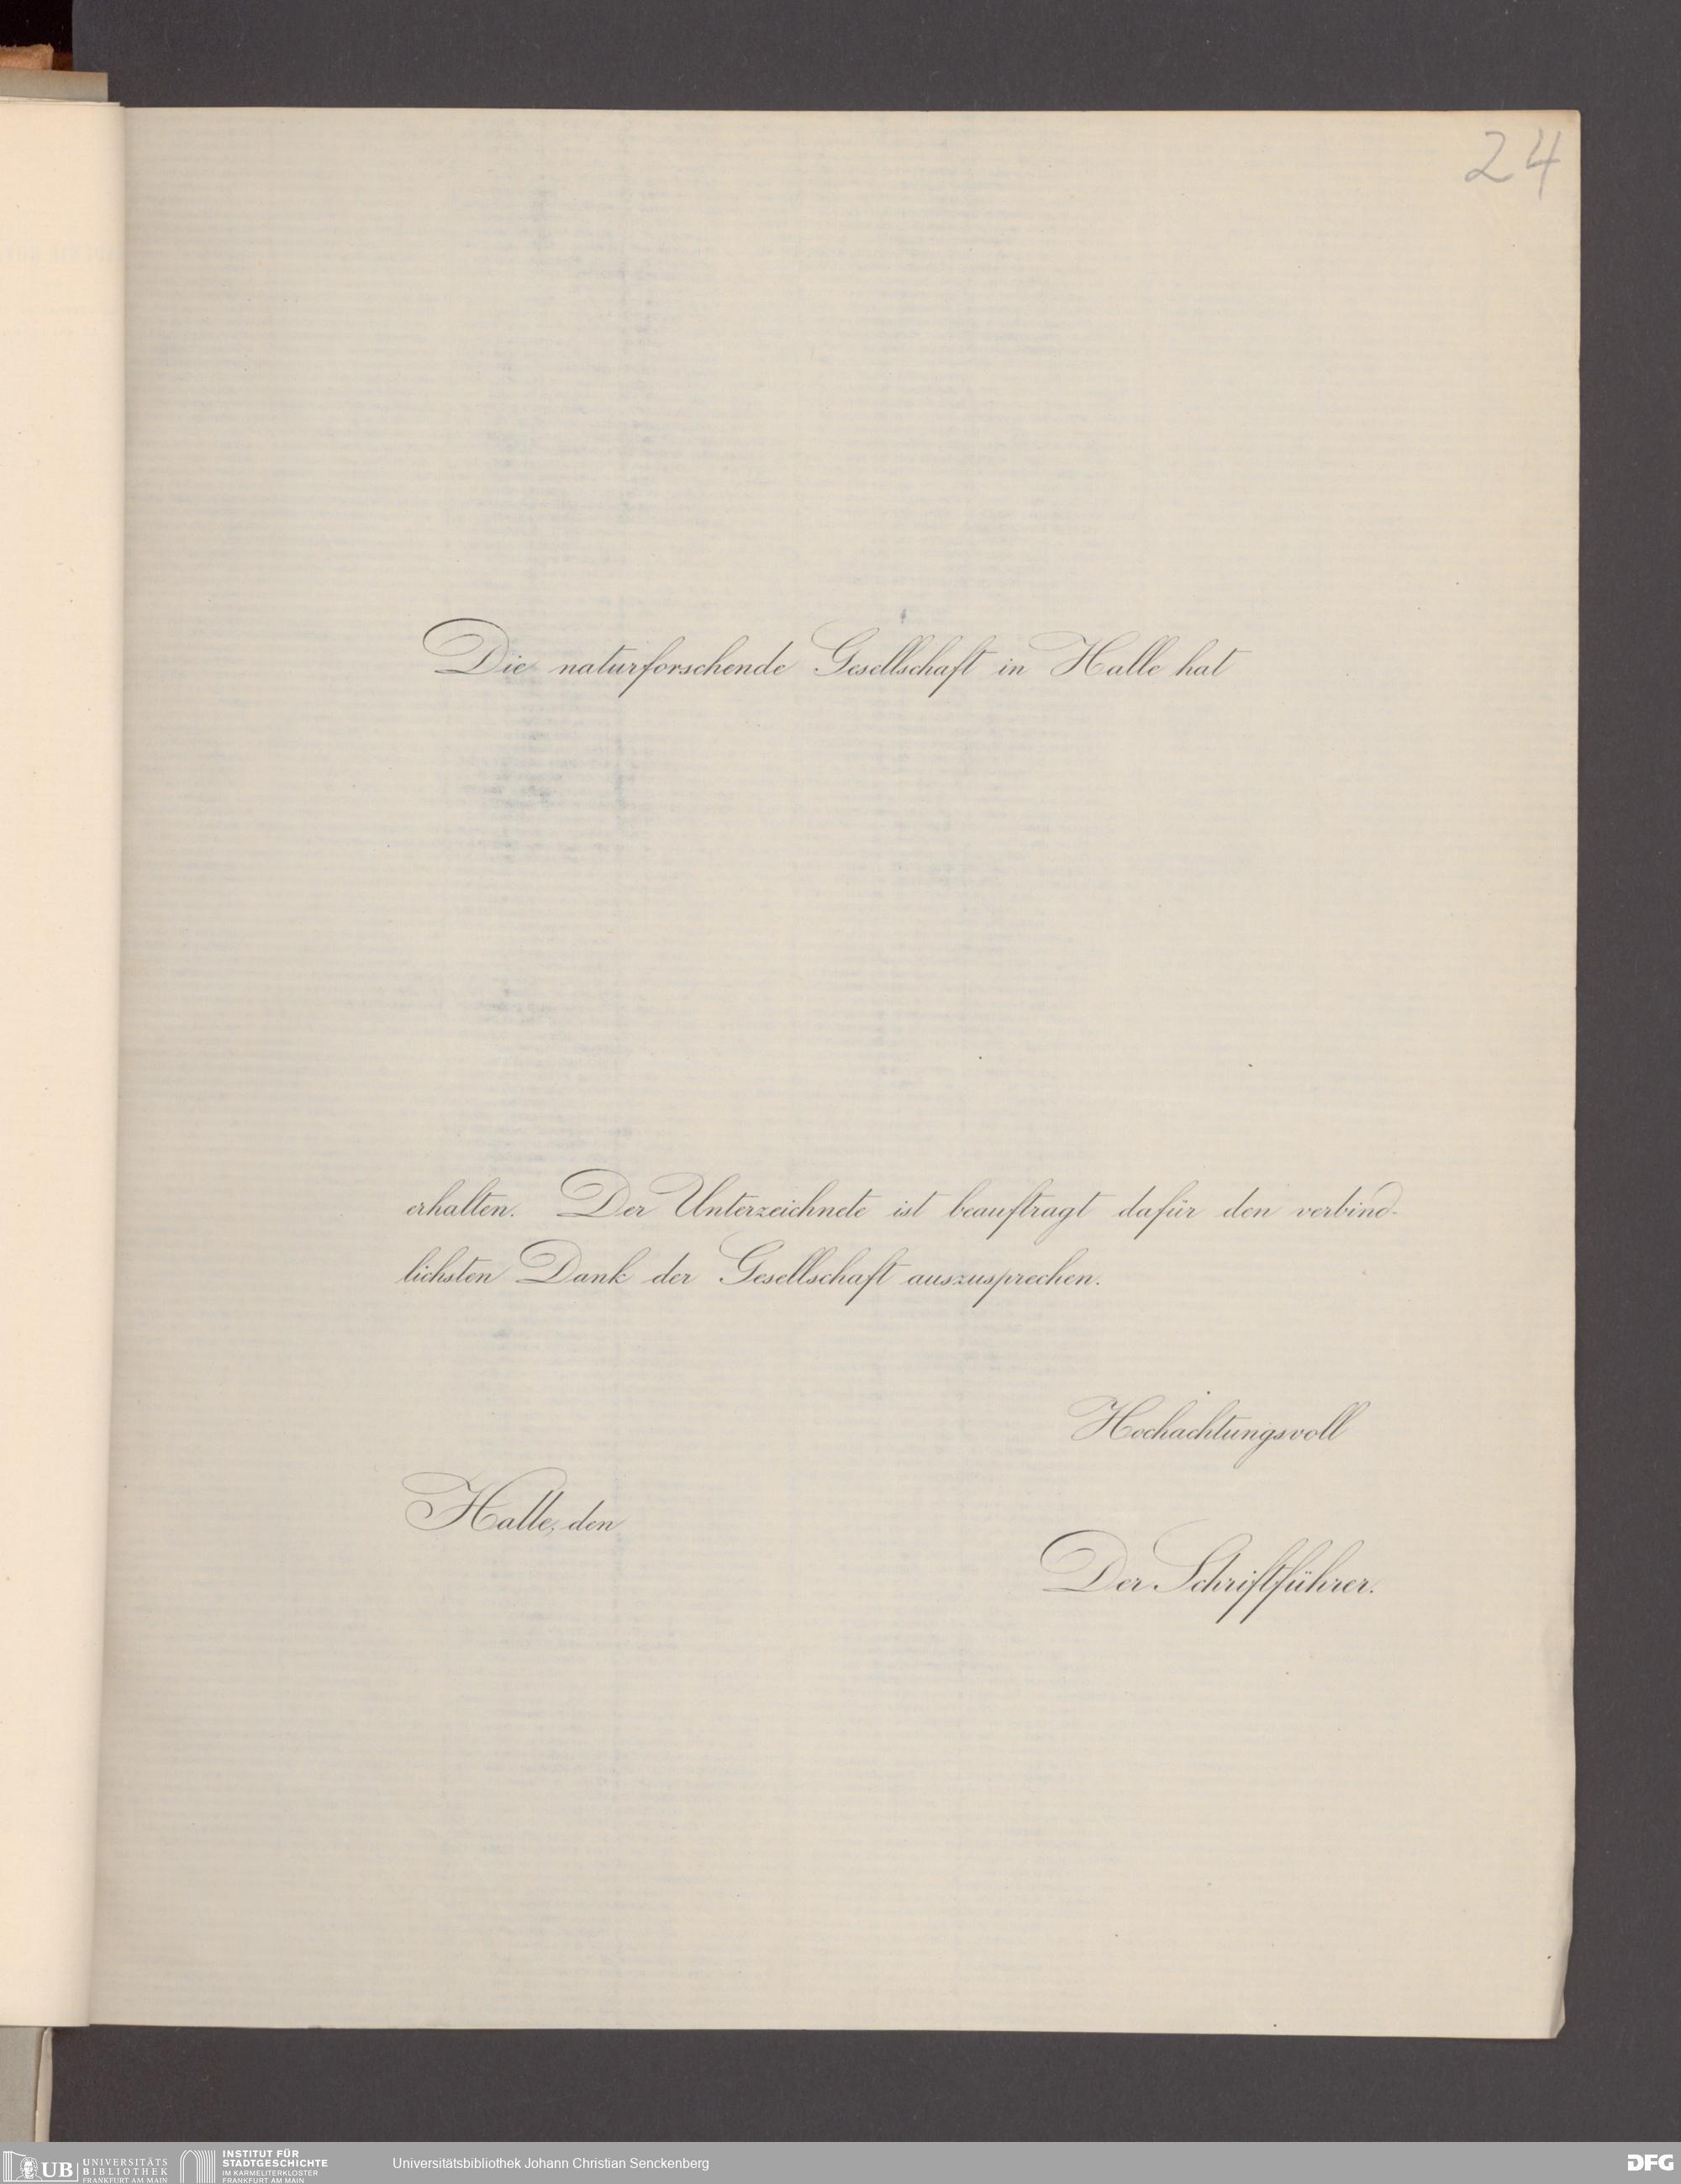 24
Die naturforschende Gesellschaft in Halle hat
erhalten. Der Unterzeichnete ist beauftragt dafür den verbind-
lichsten Dank der Gesellschaft auszusprechen.
Hochachtungsvoll
Halle, den
Der Schriftführer.
UB UNIVERSITÄTS
BIBLIOTHEK
FRANKFURT AM MAIN
INSTITUT FÜR
STADTGESCHICHTE
IM KARMELITERKLOSTER
FRANKFURT AM MAIN
Universitätsbibliothek Johann Christian Senckenberg
DFG